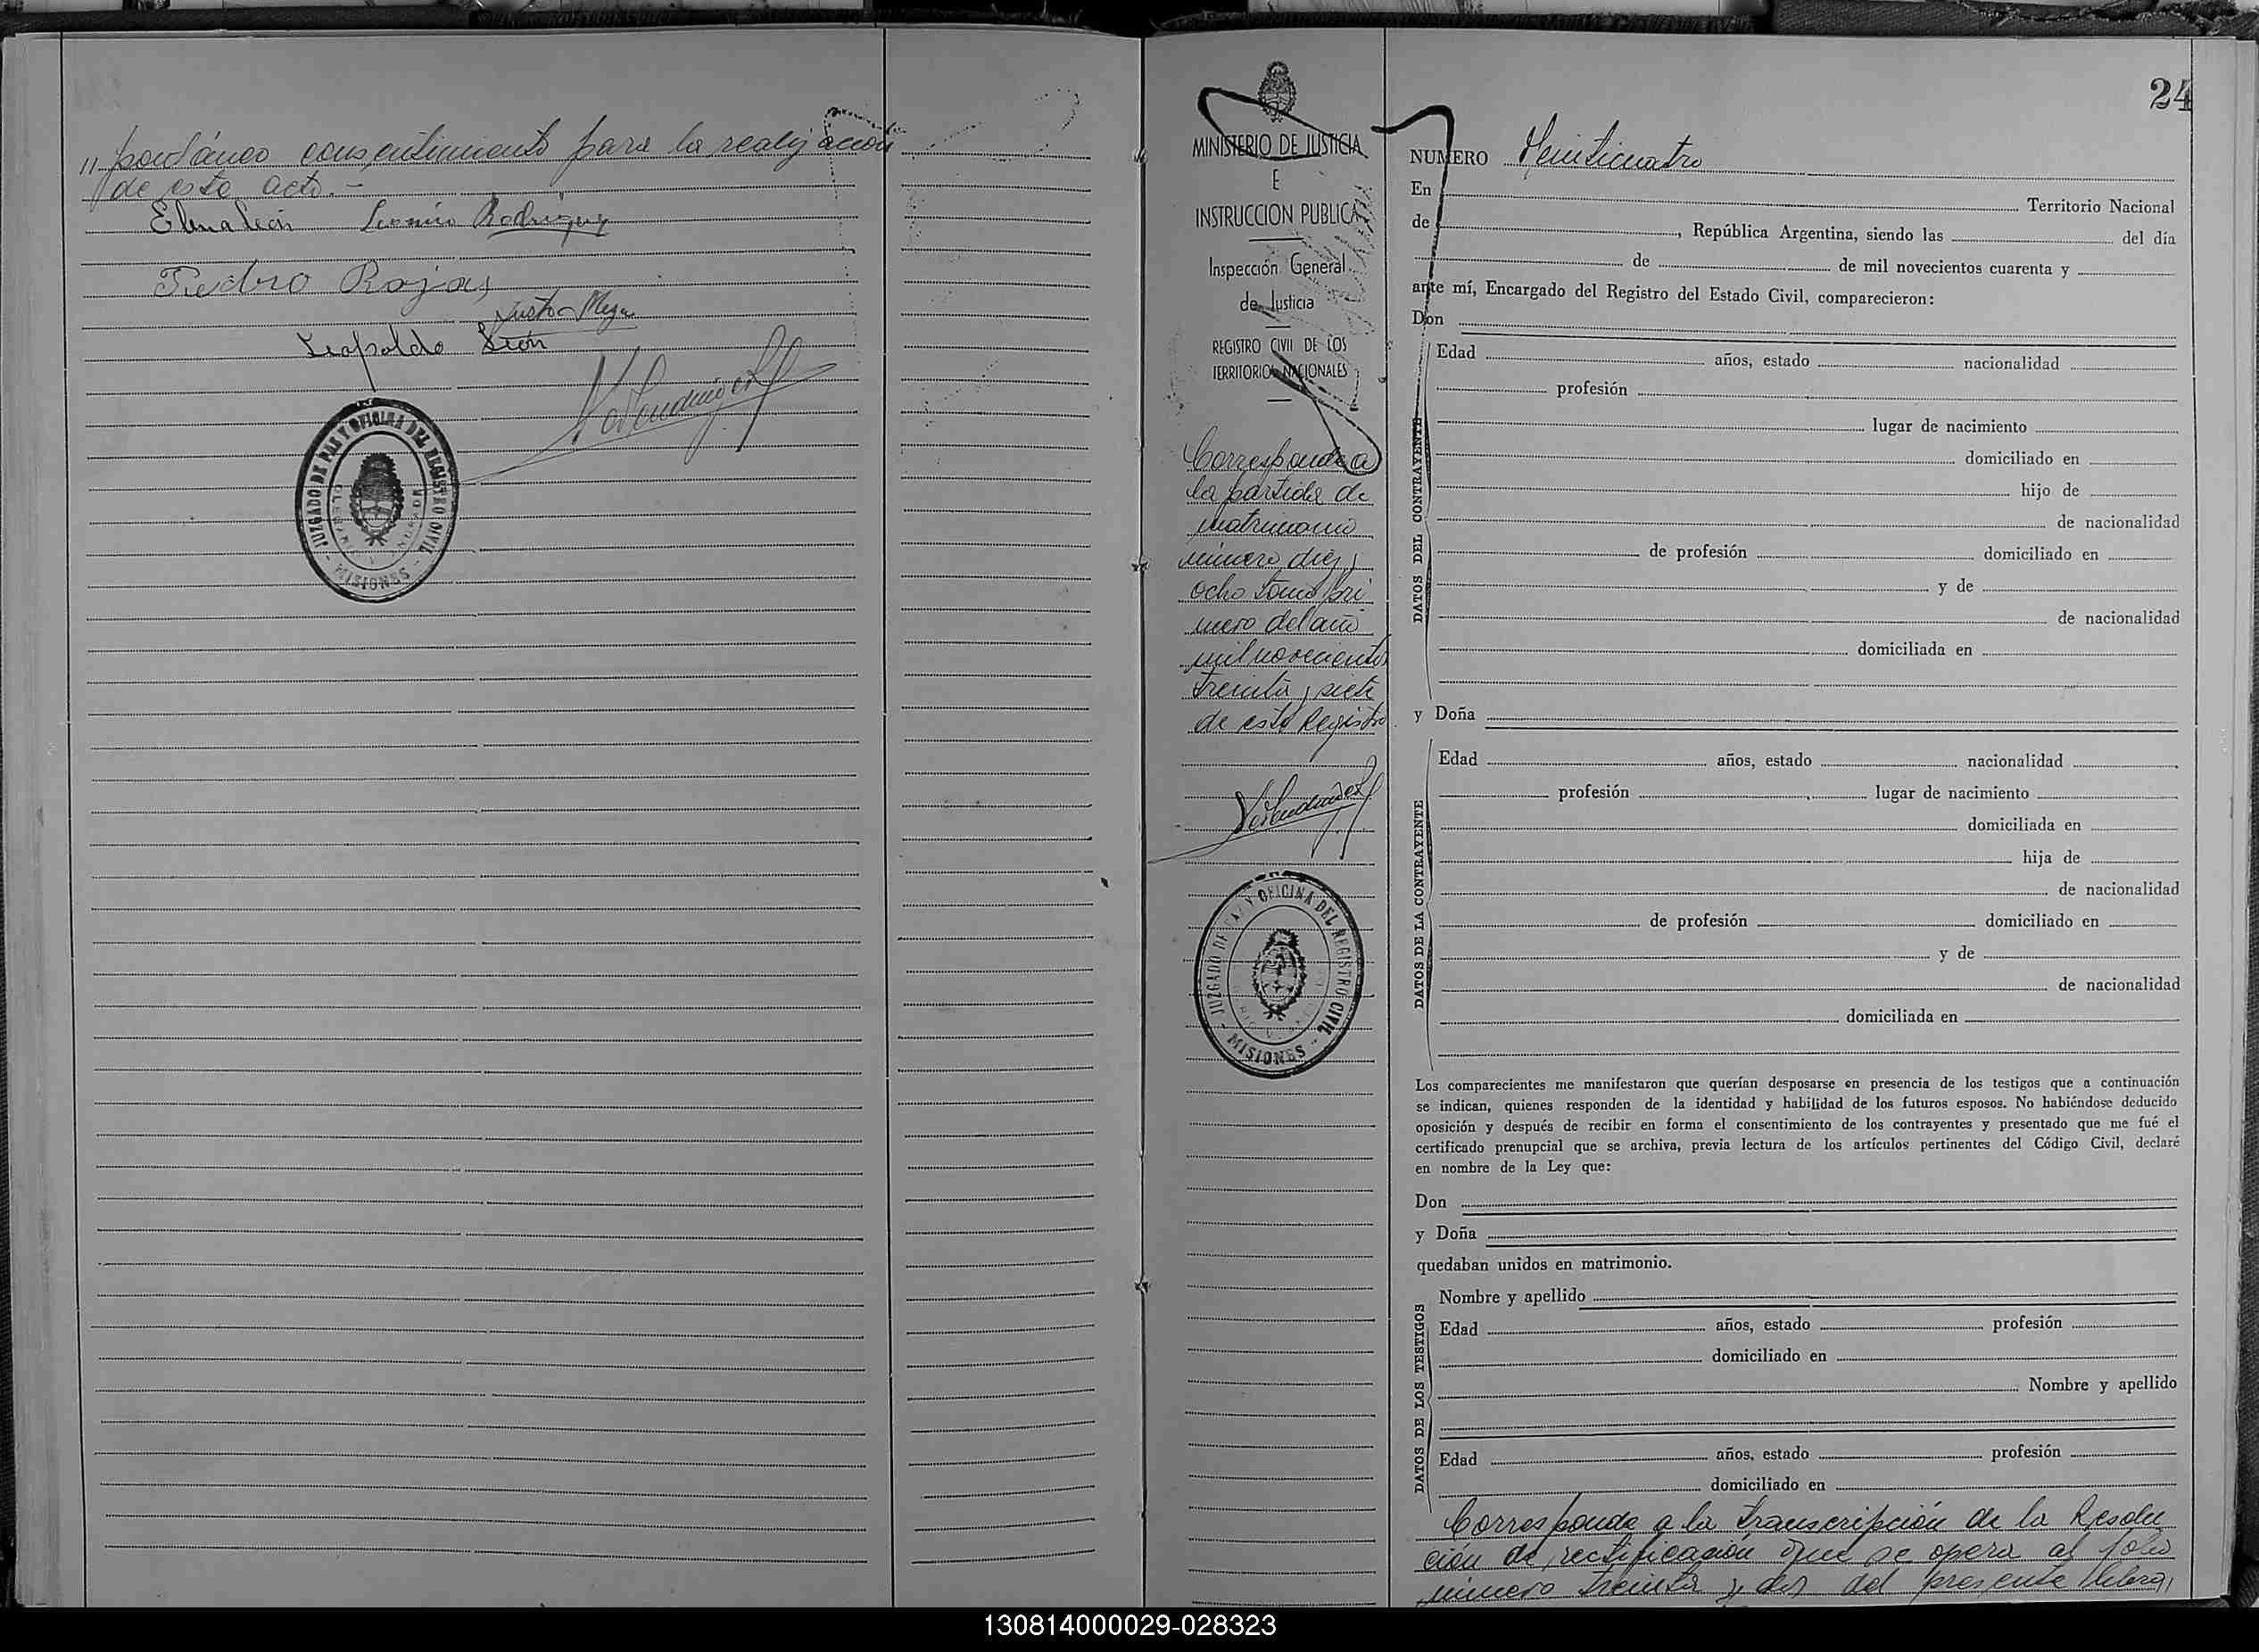 // pontáneo consentimiento para la realización
de este acto.-
Elena León Leonino Rodriguez
Pedro Rojas
Justo Meza
Leopoldo León
JUZGADO DE PAZ Y OFICINA DEL REGISTRO CIVIL
- MISIONES -
MINISTERIO DE JUSTICIA
E
INSTRUCCION PUBLICA
Inspección General
de Justicia
REGISTRO CIVIL DE LOS
TERRITORIOS NACIONALES
Corresponde a
la partida de
matrimonio
número diez y
ocho tomo pri
mero del año
mil novecientos
treinta y siete
de este Registro.
JUZGADO DE PAZ Y OFICINA DEL REGISTRO CIVIL
- MISIONES -
24
NUMERO Veinticuatro
En Territorio Nacional
de , República Argentina, siendo las del día
de de mil novecientos cuarenta y
ante mí, Encargado del Registro del Estado Civil, comparecieron:
Don
DATOS DEL CONTRAYENTE
Edad años, estado nacionalidad
profesión
lugar de nacimiento
domiciliado en
hijo de
de nacionalidad
de profesión domiciliado en
y de
de nacionalidad
domiciliada en
y Doña
DATOS DE LA CONTRAYENTE
Edad años, estado nacionalidad
profesión lugar de nacimiento
domiciliada en
hija de
de nacionalidad
de profesión domiciliado en
y de
de nacionalidad
domiciliada en
Los comparecientes me manifestaron que querían desposarse en presencia de los testigos que a continuación
se indican, quienes responden de la identidad y habilidad de los futuros esposos. No habiéndose deducido
oposición y después de recibir en forma el consentimiento de los contrayentes y presentado que me fué el
certificado prenupcial que se archiva, previa lectura de los artículos pertinentes del Código Civil, declaré
en nombre de la Ley que:
Don
y Doña
quedaban unidos en matrimonio.
DATOS DE LOS TESTIGOS
Nombre y apellido
Edad años, estado profesión
domiciliado en
Nombre y apellido
Edad años, estado profesión
domiciliado en
Corresponde a la transcripción de la Resolu
ción de rectificación que se opera al folio
número treinta y dos del presente libro,
130814000029-028323